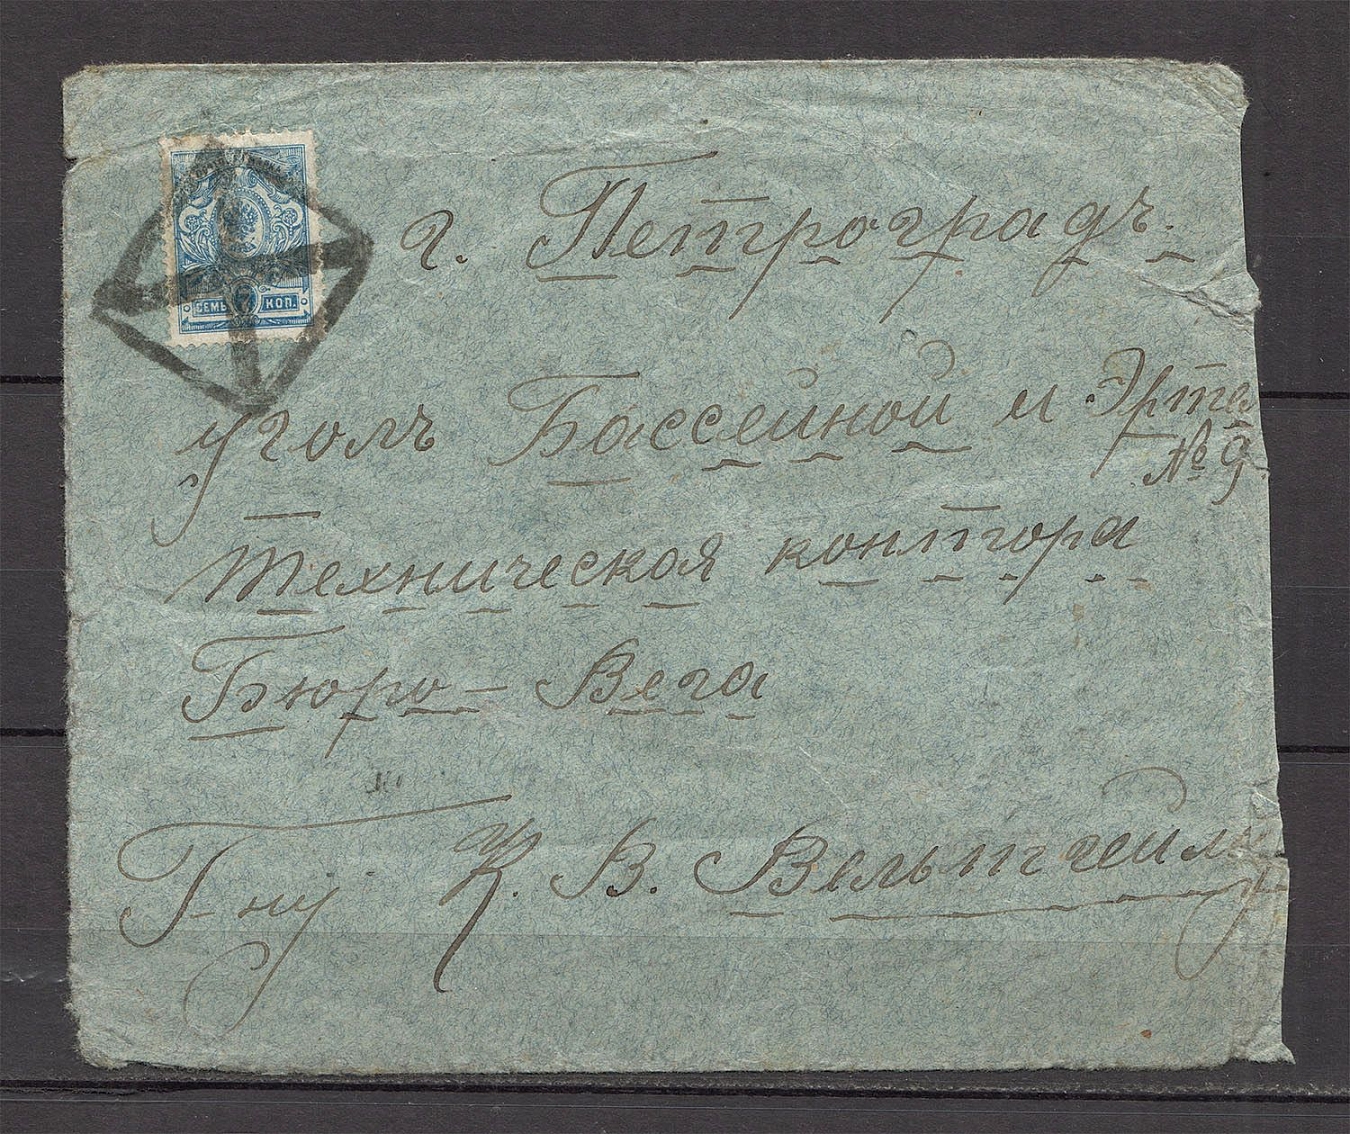 СЕМЬ 7 КОП.
г. Петроградъ.
уголъ Бассейной и Эрте
№ 9
Техническая контора
Бюро – Вега
Г-ну К. В. Вельтгейму